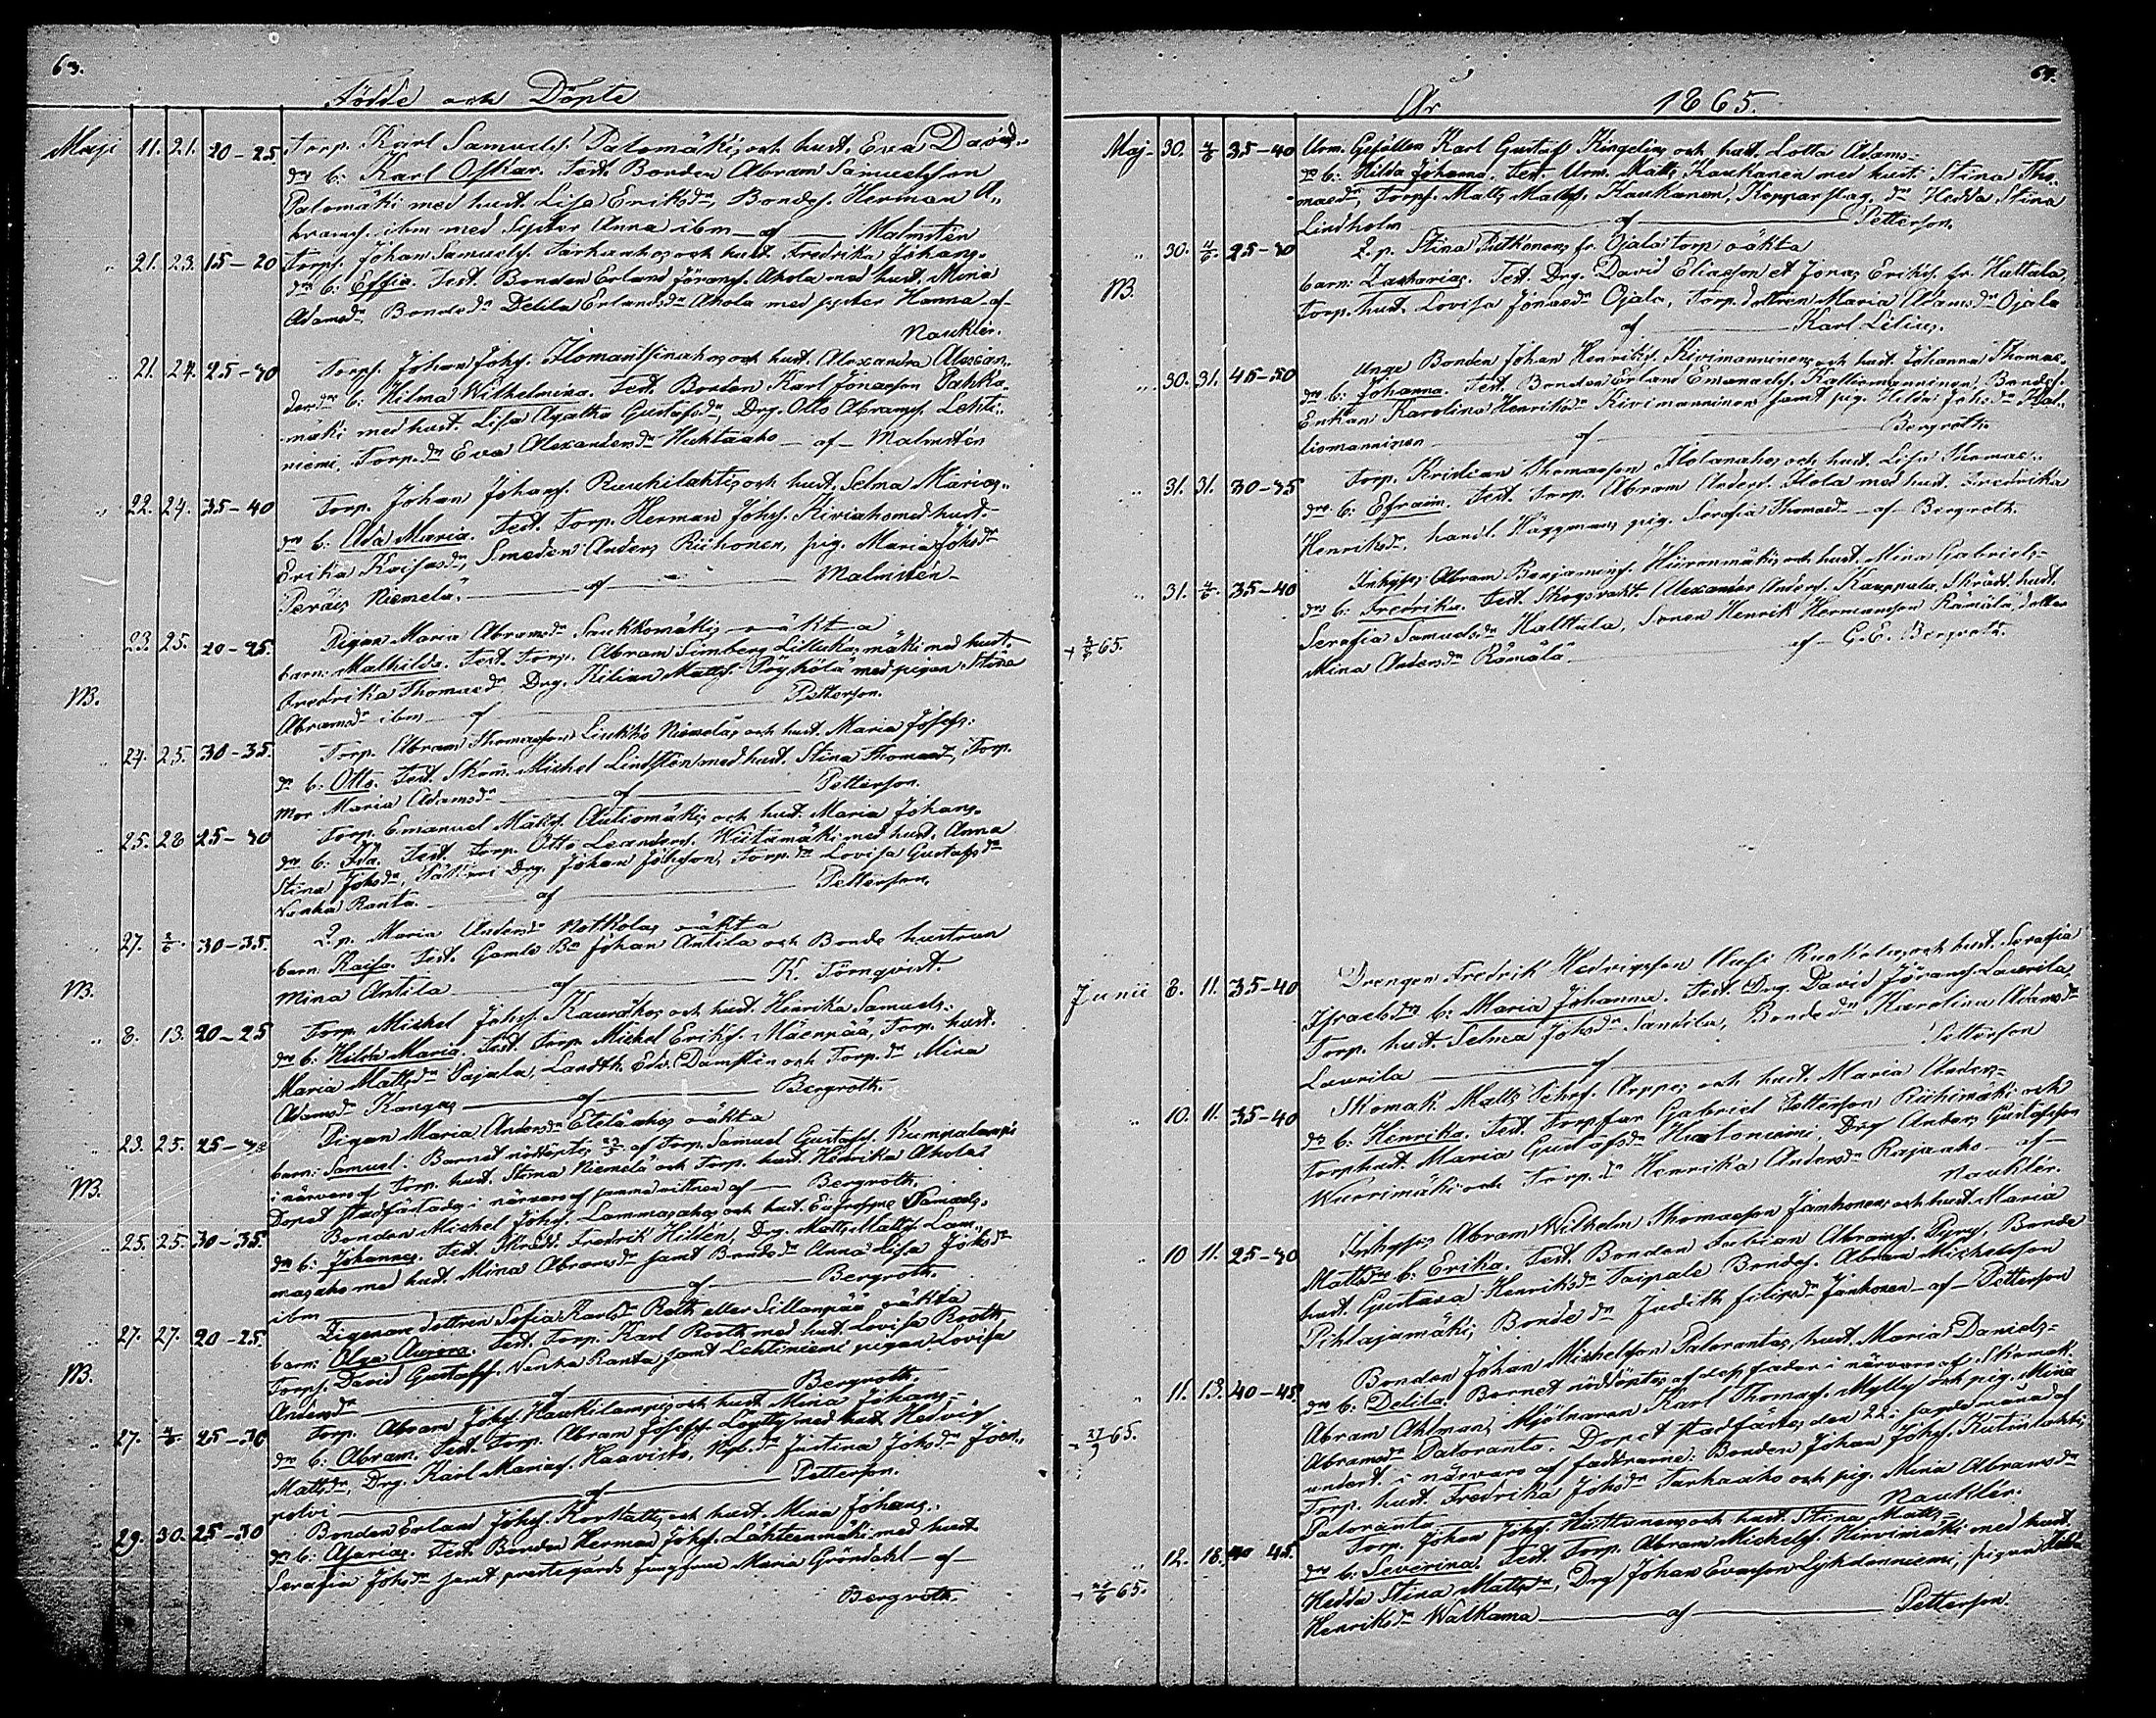 63.
Födde och Döpte
Maji 11. 21. 20-25 Torp. Karl Samuelss. Palomäkis och hust. Eva David-
dr b: Karl Oskar. Test. Bonden Abram Samuelsson
Palomäki med hust. Lisa Eriksdr, Bondes. Herman A-
brams. ibm med Syster Anna ibm — af — Malmstén
" 21. 23. 15-20 Torps. Johan Samuelss. Tarhaahos och hust. Fredrika Johans-
dr b: Effia. Test. Bonden Erland Jörans. Ahola med hust. Mina
Adamsdr, Bondedr Delila Erlandsdr Ahola med syster Hanna — af —
Nauklér.
" 21. 24. 25-30 Torps. Johan Johss. Ilomantsinahos och hust. Alexandra Alexan-
dersdr b: Hilma Wilhelmina. Test. Bonden Karl Jonasson Pahka-
mäki med hust. Lisa Agatha Gustafsdr, Drg. Otto Abrams. Lehti-
niemi, Torp.dr Eva Alexandersdr Huhtaaho — af — Malmstén
" 22. 24. 35-40 Torp. Johan Johans. Ruukilahtis och hust. Selma Marias-
dr b: Ada Maria. Test. Torp. Herman Johss. Kiviaho med hust.
Erika Kaisasdr, Smeden Anders Riihonen, pig. Maria Johsdr
Peräis Niemelä. — af — Malmstén
23. 25. 20-25. Pigan Maria Abramsdr Saukkomäkis oäkta
barn: Mathilda. Test. Torp. Abram Simberg Lillukasmäki med hust.
NB. Fredrika Thomasdr Drg. Kilian Matts. Pöyhölä med pigan Stina
Abramsdr ibm — af — Petterson.
" 24. 25. 30-35. Torp. Abram Thomasson Liukko Niemeläs och hust. Maria Josefs-
dr b: Otto. Test. Skom. Michel Lindstén med hust. Stina Thomasdr, Torp.
mor Maria Adamsdr — af — Petterson.
" 25. 28 25-30 Torp. Emanuel Matss. Autiomäkis och hust. Maria Johans-
dr b: Ida. Test. Torp. Otto Leanders. Wiitamäki med hust. Anna
Stina Johsdr, Drg. Johan Johsson, Torp.dr Lovisa Gustafsdr
Vanha Ranta. — af — Petterson.
" 27. 2/6. 30-35. L.p. Maria Andersdr Notkolas oäkta
barn: Kaisa. Test. Gamle Bn Johan Antila och Bonde hustrun
NB. Mina Antila — af — K. Törnqvist.
" 8. 13. 20-25 Torp. Michel Johss. Kauvahos och hust. Hinrika Samuels-
dr b: Hilda Maria. Test. Torp. Michel Eriks. Mäenpää, Torp. hust.
Maria Mattsdr Pajala, Landth. Edv. Damstén och Torp.dr Mina
Adamsdr Kangas — af — Bergroth.
" 23. 25. 25-30 Pigan Maria Andersdr Eteläahos oäkta
barn: Samuel: Barnet nöddöptes 23/5 af Torp. Samuel Gustafss. Kumpulampi
NB. i närvaro af Torp. hust. Stina Niemelä och Torp. hust. Henrika Ahola
Dopet stadfästades i närvaro af samma vittnen af — Bergroth.
" 25. 25. 30-35. Bonden Michel Johss. Lammasahos och hust. Eufrosyne Samuels-
dr b: Johannes. Test. Skrädd. Fredrik Hildén, Drg. Matts Matts. Lam-
masaho med hust. Mina Abramsdr samt Bondedr Anna Lisa Johsdr
ibm — af — Bergroth.
" 27. 27. 20-25. Zigenardottren Sofia Karlsdr Roth eller Sillanpää oäkta
barn: Olga Aurora. Test. Torp. Karl Rooth med hust. Lovisa Rooth,
NB. Torps. David Gustafss. Vanha Ranta samt Lehtiniemi pigan Lovisa
Andersdr — af — Bergroth.
" 27. 4/6. 25-30 Torp. Abram Johss. Haukilampis och hust. Mina Johans-
dr b: Abram. Test. Torp. Abram Josefss. Löytty med hust. Hedvig
Mattsdr, Drg. Karl Marias. Haavisto, dr Justina Johsdr Joen-
polvi — af — Petterson.
" 29. 30. 25-30 Bonden Erland Johss. Korkattis och hust. Mina Johans-
dr b: Asarias. Test. Bonden Herman Johss. Lähteenmäki med hust.
Serafia Johsdr samt prestegårds jungfrun Maria Gröndahl — af —
Bergroth.
64.
År 1865.
Maj 30. 4/6 35-40 Urm. Gesällen Karl Gustaf Kingelins och hust. Lotta Adams-
dr b: Hilda Johanna. Test. Urm. Matts Kaukonen med hust. Stina Tho-
masdr, Torps. Matts Mattss. Kaukonen, Kopparslag. dr Hedda Stina
Lindholm — af — Petterson.
" 30. 4/6. 25-30 L.p. Stina Putkonens fr. Ojala torp oäkta
NB. barn: Zacharias. Test Drg. David Eliasson et Jonas Eriks. fr. Huttula,
Torp. hust. Lovisa Jonasdr Ojala, Torp. dottren Maria Adamsdr Ojala
af — Karl Lilius.
" 30. 31. 45-50 Unga Bonden Johan Henriks. Kivimanninens och hust. Johanna Thomas-
dr b: Johanna. Test. Bonden Erland Emanuels. Kalliomanninen, Bondes.
Enkan Karolina Henriksdr Kivimanninen samt pig. Hilda Johsdr Kal-
liomanninen — af — Bergroth.
" 31. 31. 30-35 Torp. Kristian Thomasson Kolanahos och hust. Lisa Thomas-
dr b: Efraim. Test. Torp. Abram Anders. Kola med hust. Fredrika
Henriksdr, handl. Häggmans pig. Serafia Thomasdr — af — Bergroth.
" 31. 4/6. 35-40 Inhyses Abram Benjamins. Hiirenmäkis och hust. Mina Gabriels-
dr b: Fredrika. Test. Skogsvakt. Alexander Anders. Kauppala, Skrädd. hust.
65. Serafia Samuelsdr Halttula, Sonen Henrik Hermansson Rämälä, dotter
Mina Andersdr Rämälä — af — G. E. Bergroth.
Junii 8. 11. 35-40 Drengen Fredrik Hedvigsson Uusi Ruokolas och hust. Serafia
Israelsdr b: Maria Johanna. Test. Drg. David Jörans. Laurila,
Torp. hust. Selma Johsdr Sandila, Bondedr Karolina Adamsdr
Laurila — af — Petterson
" 10. 11. 35-40 Skomak. Matts Johss. Arppes och hust. Maria Anders-
dr b: Henrika. Test. Torpfar Gabriel Petterson Riihimäki och
Torp hust. Maria Gustafsdr Hietoniemi, Drg Anders Gustafsson
Wuorimäki och Torp.dr Henrika Andersdr Rajaaho — af —
Nauklér.
" 10 11. 25-30 Inhyses Abram Wilhelm Thomasson Jankonens och hust. Maria
Mattsdr b: Erika. Test. Bonden Julian Abrams. Pyry, Bonde
hust. Gustava Henriksdr Taipale Bondes. Abram Michelsson
Pihlajamäki, Bondedr Judith Filipsdr Jankonen — af — Petterson
" 11. 13. 40-45 Bonden Johan Michelsson Palorantas, hust. Maria Daniels-
dr b: Delila. Barnet nöddöptes af dess fader i närvaro af Skomak.
27/9 65. Abram Ahlman, Mjölnaren Karl Thomass. Mylly och pig. Mina
Abramsdr Paloranta. Dopet stadfästes den 22: samma månad af
undert. i närvaro af faddrarne: Bonden Johan Johss. Kutinlahti,
Torp. hust. Fredrika Johsdr Tarhaaho och pig. Mina Abramsdr
Paloranta — Nauklér.
" 12. 18. 40-45. Torp. Johan Johss. Huttunens och hust. Stina Matts-
dr b: Severina. Test. Torp. Abram Michelss. Hirvimäki med hust.
65. Hedda Stina Mattsdr, Drg Johan Evasson Lyhdenniemi, pigan
Henriksdr Walkama — af — Petterson.